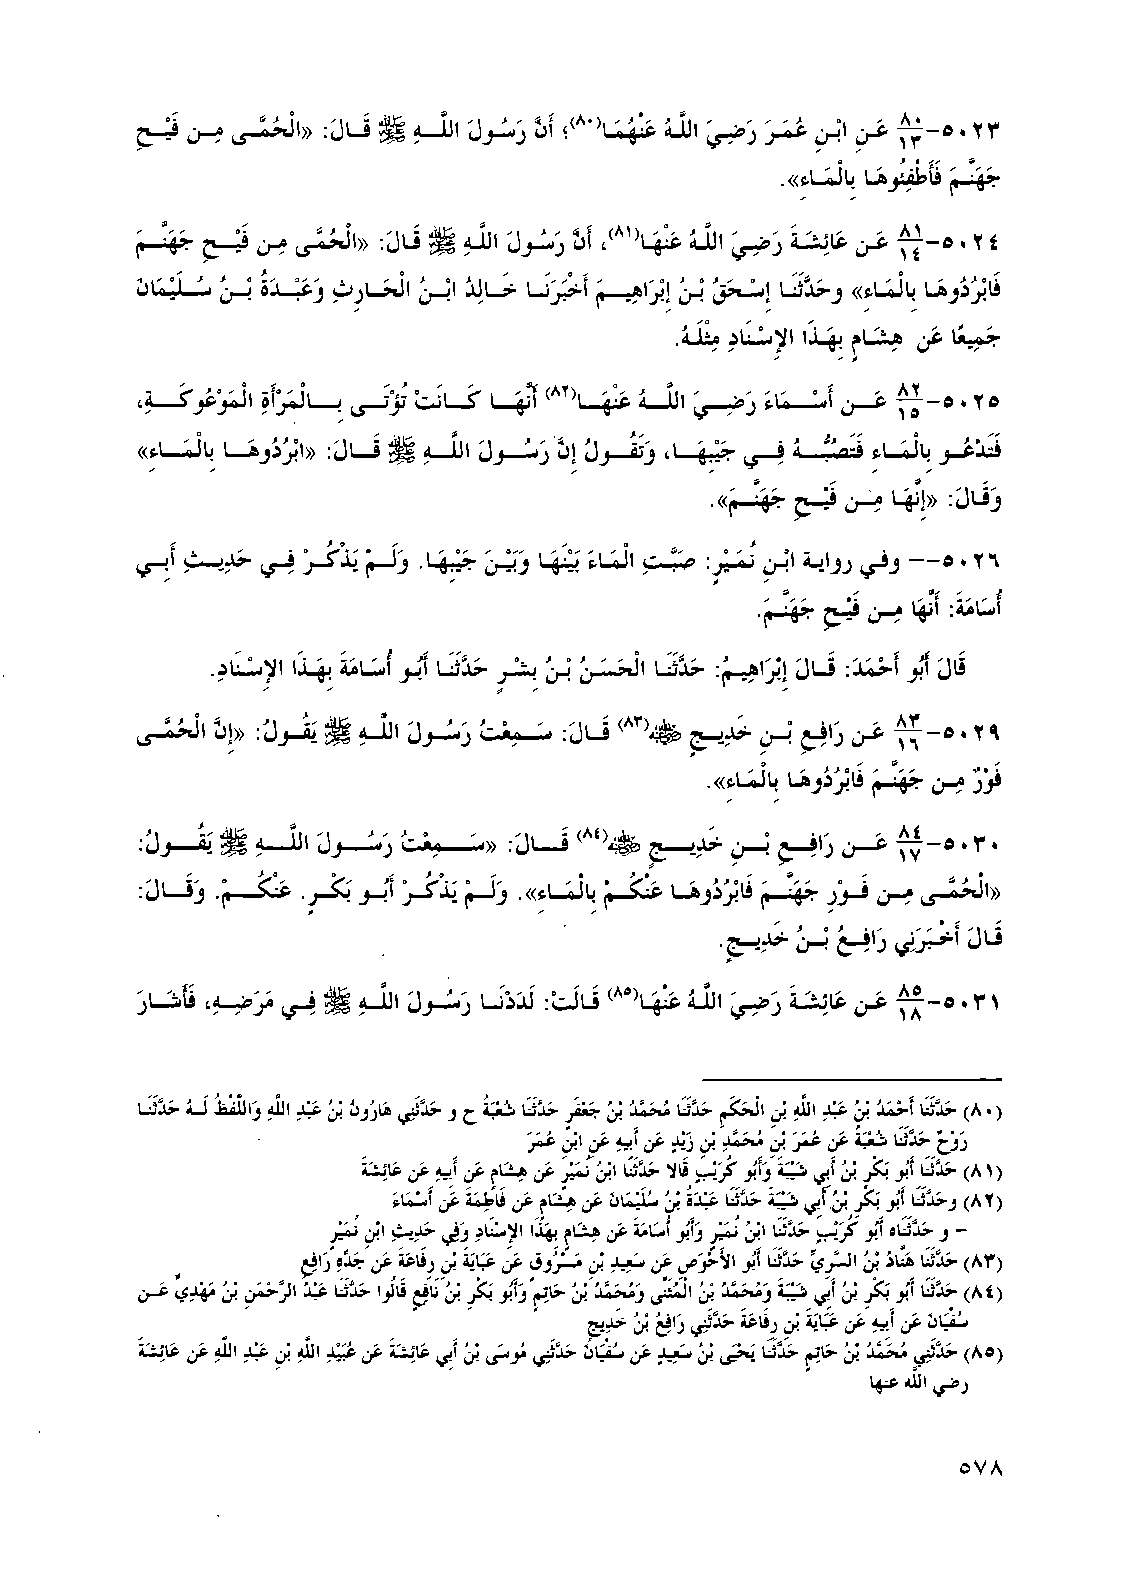 ٥٠٢٣-٨٠/١٣ عَنِ ابْنِ عُمَرَ رَضِيَ اللَّهُ عَنْهُمَا(٨٠)؛ أَنَّ رَسُولَ اللَّهِ ﷺ قَالَ: «الْحُمَّى مِن فَيْحِ
جَهَنَّمَ فَأَطْفِئُوهَا بِالْمَاءِ».
٥٠٢٤-٨١/١٤ عَن عَائِشَةَ رَضِيَ اللَّهُ عَنْهَا(٨١)، أَنَّ رَسُولَ اللَّهِ ﷺ قَالَ: «الْحُمَّى مِن فَيْحِ جَهَنَّمَ
فَابْرُدُوهَا بِالْمَاءِ» وحَدَّثَنَا إِسْحَقُ بْنُ إِبْرَاهِيمَ أَخْبَرَنَا خَالِدُ ابْنُ الْحَارِثِ وَعَبْدَةُ بْنُ سُلَيْمَانَ
جَمِيعًا عَن هِشَامٍ بِهَذَا الإِسْنَادِ مِثْلَهُ.
٥٠٢٥-٨٢/١٥ عَن أَسْمَاءَ رَضِيَ اللَّهُ عَنْهَا(٨٢) أَنَّهَا كَانَتْ تُؤْتَى بِالْمَرْأَةِ الْمَوْعُوكَةِ،
فَتَدْعُو بِالْمَاءِ فَتَصُبُّهُ فِي جَيْبِهَا، وَتَقُولُ إِنَّ رَسُولَ اللَّهِ ﷺ قَالَ: «ابْرُدُوهَا بِالْمَاءِ»
وَقَالَ: «إِنَّهَا مِن فَيْحِ جَهَنَّمَ».
٥٠٢٦-- وفي رواية ابْنِ نُمَيْرٍ: صَبَّتِ الْمَاءَ بَيْنَهَا وَبَيْنَ جَيْبِهَا. وَلَمْ يَذْكُرْ فِي حَدِيثِ أَبِي
أُسَامَةَ: أَنَّهَا مِن فَيْحِ جَهَنَّمَ.
قَالَ أَبُو أَحْمَدَ: قَالَ إِبْرَاهِيمُ: حَدَّثَنَا الْحَسَنُ بْنُ بِشْرٍ حَدَّثَنَا أَبُو أُسَامَةَ بِهَذَا الإِسْنَادِ.
٥٠٢٩-٨٣/١٦ عَن رَافِعِ بْنِ خَدِيجٍ ﷺ(٨٣) قَالَ: سَمِعْتُ رَسُولَ اللَّهِ ﷺ يَقُولُ: «إِنَّ الْحُمَّى
فَوْرٌ مِن جَهَنَّمَ فَابْرُدُوهَا بِالْمَاءِ».
٥٠٣٠-٨٤/١٧ عَن رَافِعِ بْنِ خَدِيجٍ ﷺ(٨٤) قَالَ: «سَمِعْتُ رَسُولَ اللَّهِ ﷺ يَقُولُ:
«الْحُمَّى مِن فَوْرِ جَهَنَّمَ فَابْرُدُوهَا عَنْكُمْ بِالْمَاءِ». وَلَمْ يَذْكُرْ أَبُو بَكْرٍ. عَنْكُمْ. وَقَالَ:
قَالَ أَخْبَرَنِي رَافِعُ بْنُ خَدِيجٍ.
٥٠٣١-٨٥/١٨ عَن عَائِشَةَ رَضِيَ اللَّهُ عَنْهَا(٨٥) قَالَتْ: لَدَدْنَا رَسُولَ اللَّهِ ﷺ فِي مَرَضِهِ، فَأَشَارَ
(٨٠) حَدَّثَنَا أَحْمَدُ بْنُ عَبْدِ اللَّهِ بْنِ الْحَكَمِ حَدَّثَنَا مُحَمَّدُ بْنُ جَعْفَرٍ حَدَّثَنَا شُعْبَةُ ح و حَدَّثَنِي هَارُونُ بْنُ عَبْدِ اللَّهِ وَاللَّفْظُ لَهُ حَدَّثَنَا
رَوْحٌ حَدَّثَنَا شُعْبَةُ عَن عُمَرَ بْنِ مُحَمَّدِ بْنِ زَيْدٍ عَن أَبِيهِ عَنِ ابْنِ عُمَرَ
(٨١) حَدَّثَنَا أَبُو بَكْرِ بْنُ أَبِي شَيْبَةَ وَأَبُو كُرَيْبٍ قَالَا حَدَّثَنَا ابْنُ نُمَيْرٍ عَن هِشَامٍ عَن أَبِيهِ عَن عَائِشَةَ
(٨٢) وحَدَّثَنَا أَبُو بَكْرِ بْنُ أَبِي شَيْبَةَ حَدَّثَنَا عَبْدَةُ بْنُ سُلَيْمَانَ عَن هِشَامٍ عَن فَاطِمَةَ عَن أَسْمَاءَ
- و حَدَّثَنَاه أَبُو كُرَيْبٍ حَدَّثَنَا ابْنُ نُمَيْرٍ وَأَبُو أُسَامَةَ عَن هِشَامٍ بِهَذَا الإِسْنَادِ وَفِي حَدِيثِ ابْنِ نُمَيْرٍ
(٨٣) حَدَّثَنَا هَنَّادُ بْنُ السَّرِيِّ حَدَّثَنَا أَبُو الأَحْوَصِ عَن سَعِيدِ بْنِ مَسْرُوقٍ عَن عَبَايَةَ بْنِ رِفَاعَةَ عَن جَدِّهِ رَافِعِ
(٨٤) حَدَّثَنَا أَبُو بَكْرِ بْنُ أَبِي شَيْبَةَ وَمُحَمَّدُ بْنُ الْمُثَنَّى وَمُحَمَّدُ بْنُ حَاتِمٍ وَأَبُو بَكْرِ بْنُ نَافِعٍ قَالُوا حَدَّثَنَا عَبْدُ الرَّحْمَنِ بْنُ مَهْدِيٍّ عَن
سُفْيَانَ عَن أَبِيهِ عَن عَبَايَةَ بْنِ رِفَاعَةَ حَدَّثَنِي رَافِعُ بْنُ خَدِيجٍ
(٨٥) حَدَّثَنِي مُحَمَّدُ بْنُ حَاتِمٍ حَدَّثَنَا يَحْيَى بْنُ سَعِيدٍ عَن سُفْيَانَ حَدَّثَنِي مُوسَى بْنُ أَبِي عَائِشَةَ عَن عُبَيْدِ اللَّهِ بْنِ عَبْدِ اللَّهِ عَن عَائِشَةَ
رضي الله عنها
٥٧٨